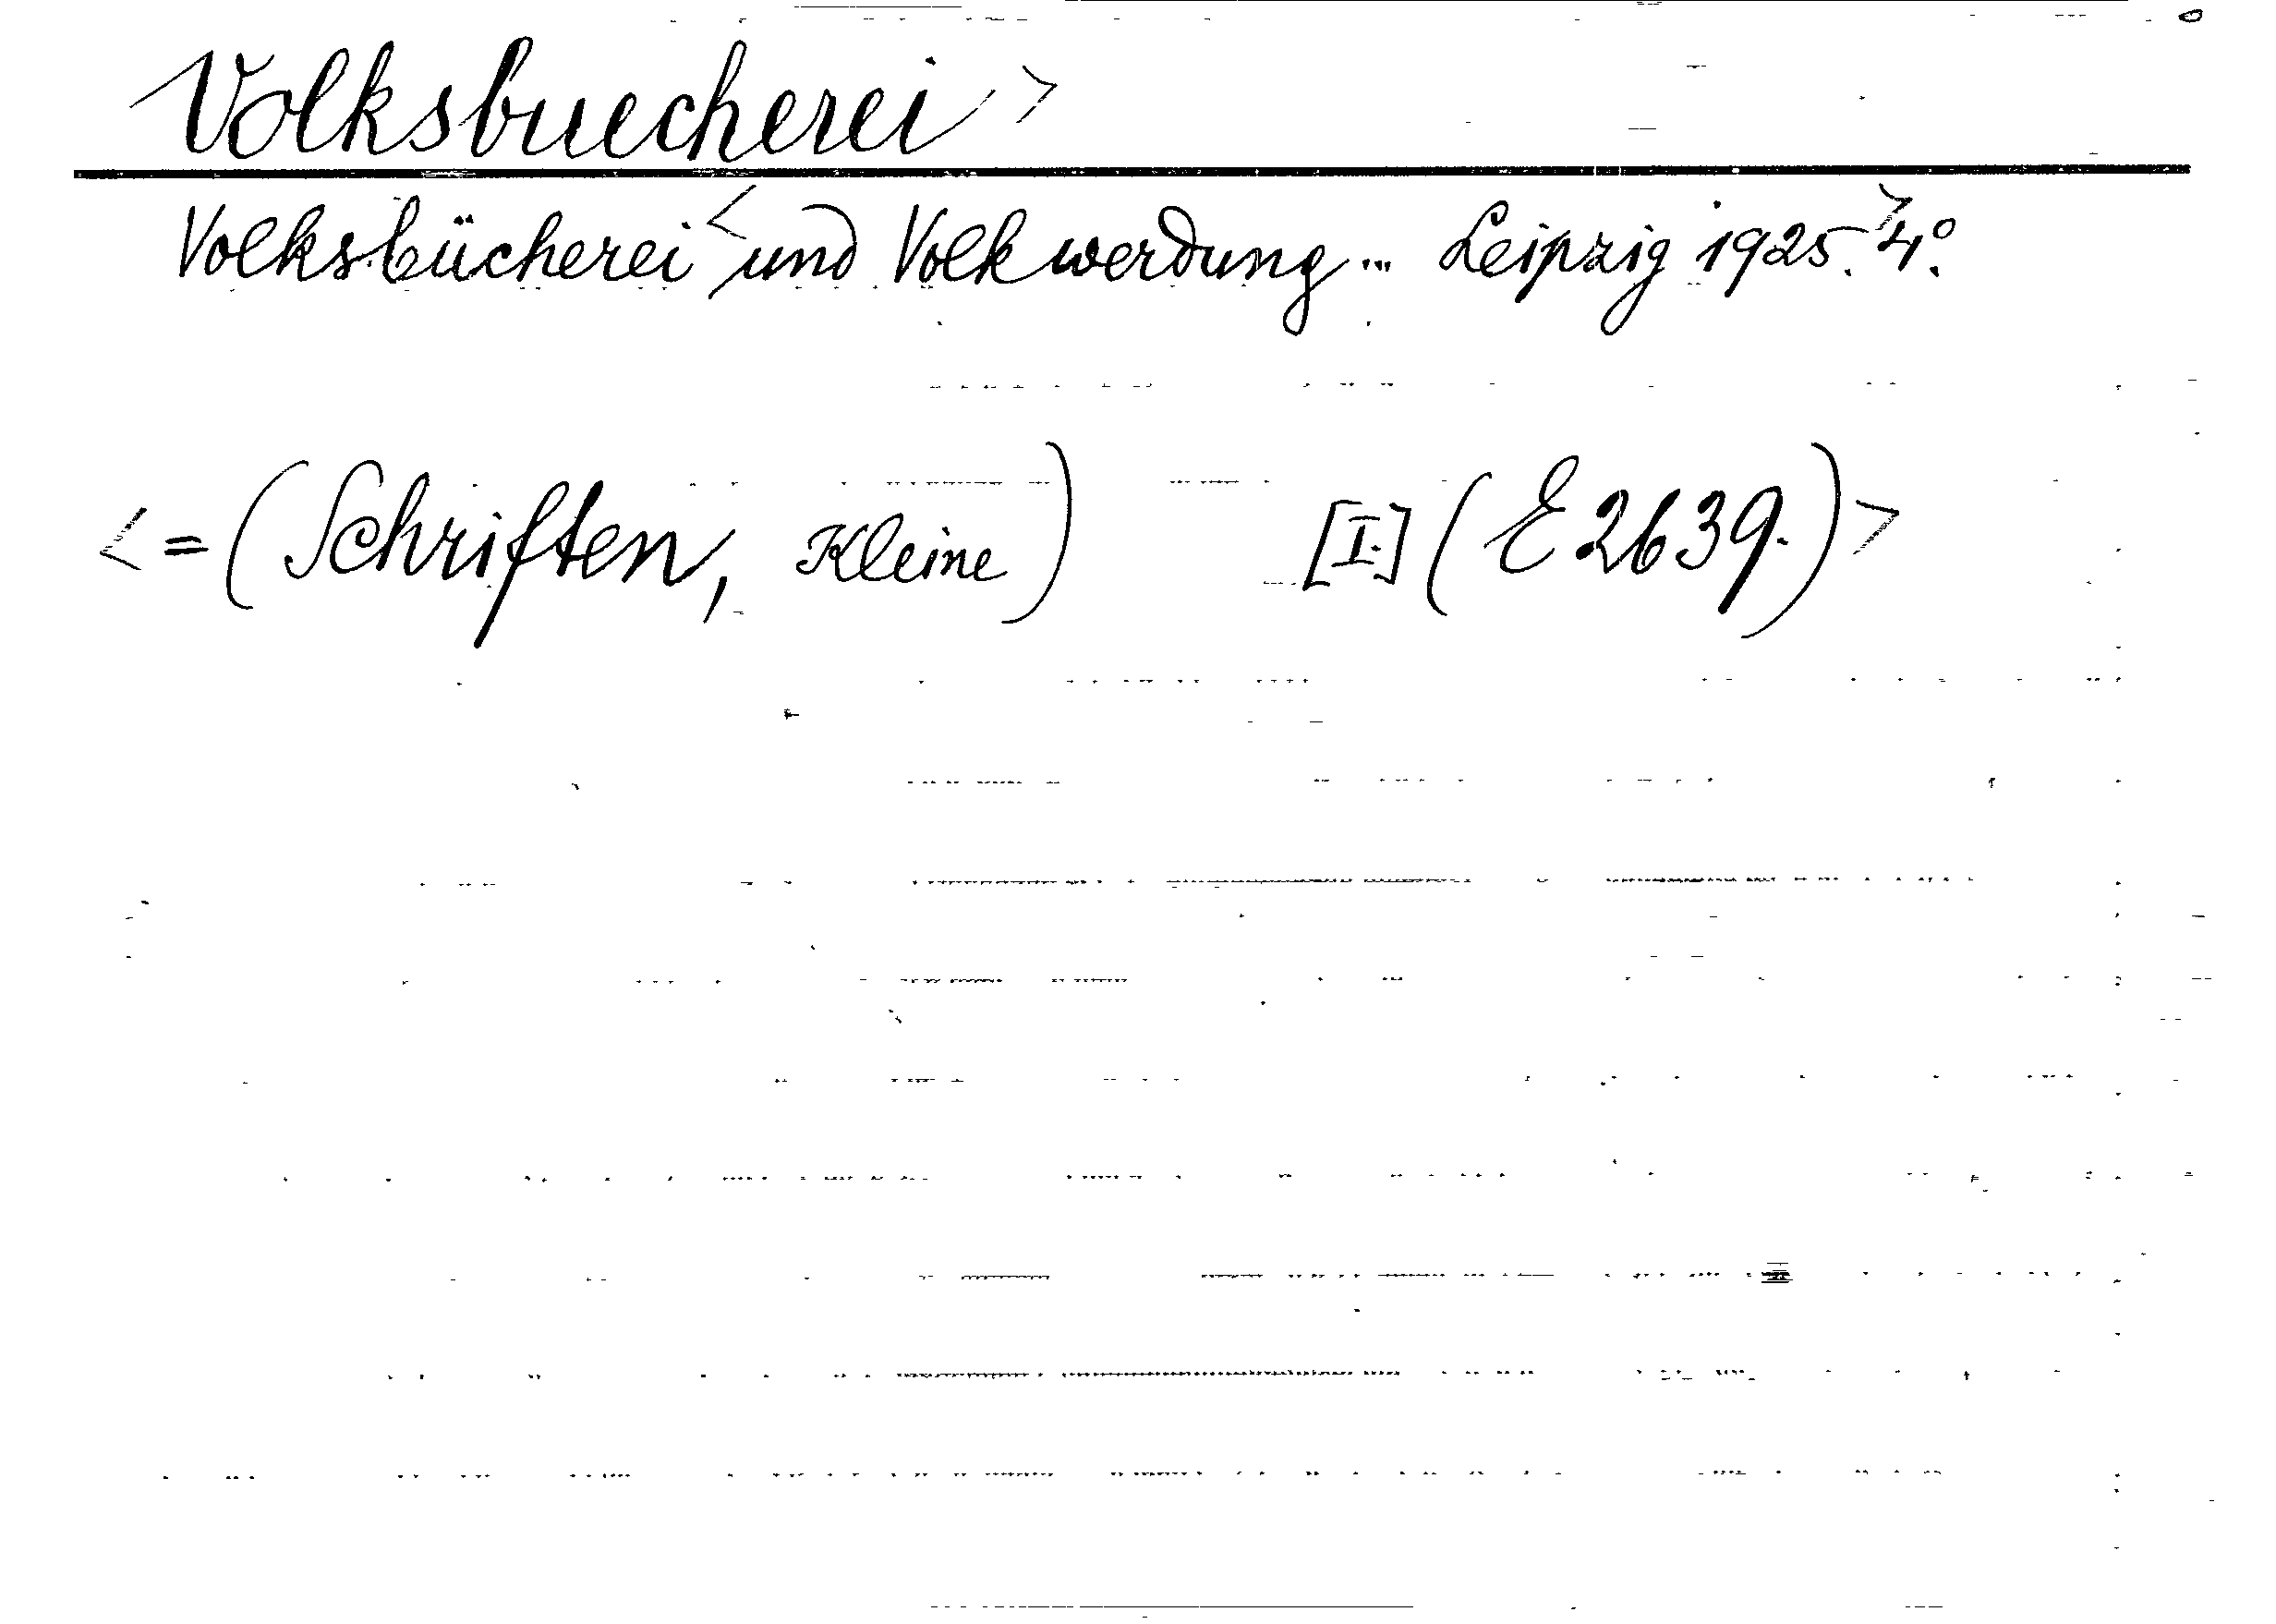 Volksbuecherei >
Volksbücherei < und Volkwerdung... Leipzig 1925. > 4°.
< = (Schriften, Kleine) [I.] (E 2639.) >